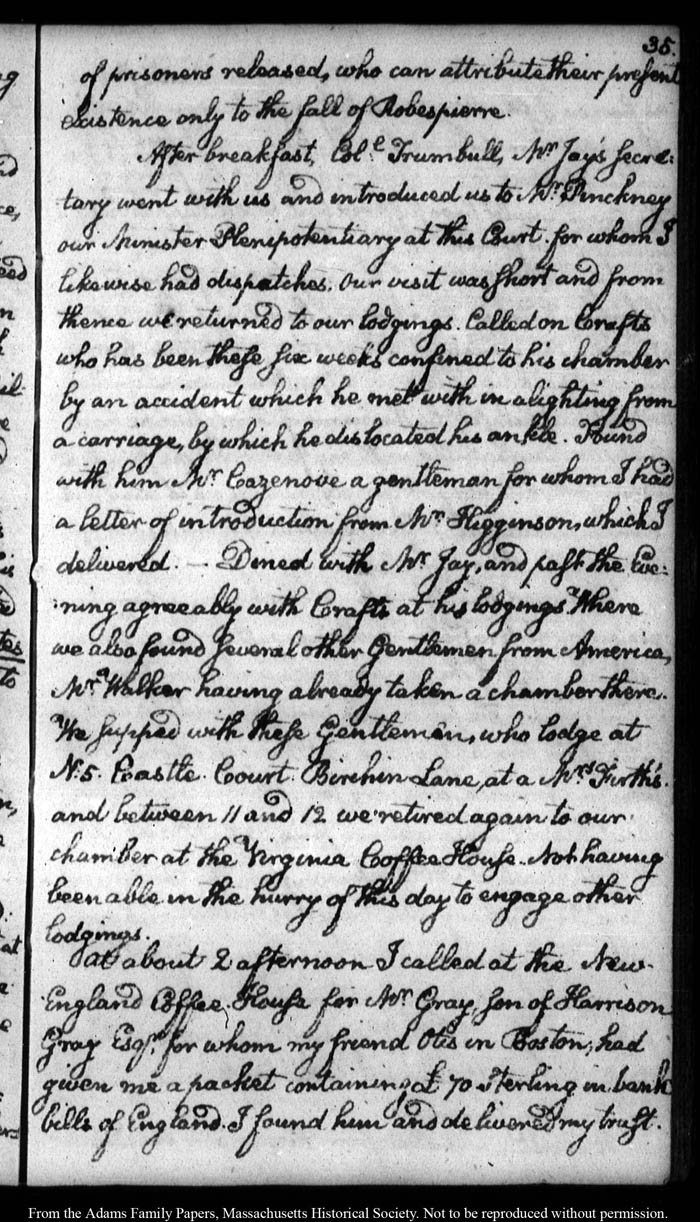 35.
of prisoners released, who can attribute their present
existence only to the fall of Robespierre.
After breakfast, Col.e Trumbull, Mr Jay's Secre:
tary went with us and introduced us to Mr Pinckney
our Minister Plenipotentiary at this Court. for whom I
likewise had dispatches. Our visit was short and from
thence we returned to our lodgings. Called on Crafts
who has been these six weeks confined to his chamber
by an accident which he met with in alighting from
a carriage, by which he dislocated his ankle. Found
with him Mr Cazenove a gentleman for whom I had
a letter of introduction from Mr Higginson, which I
delivered. — Dined with Mr Jay, and past the Eve:
ning agreeably with Crafts at his lodgings. Where
we also found several other Gentlemen from America,
Mr Walker having already taken a chamber there.
We supped with these Gentlemen, who lodge at
N. 5. Castle Court Birchin Lane, at a Mrs Firth's.
and between 11 and 12 we retired again to our
chamber at the Virginia Coffee House. Not having
been able in the hurry of this day to engage other
lodgings.
At about 2 afternoon I called at the New-
England Coffee House for Mr Gray, son of Harrison
Gray Esqr. for whom my friend Otis in Boston, had
given me a packet containing £ 70 Sterling in bank
bills of England. I found him and delivered my trust.
From the Adams Family Papers, Massachusetts Historical Society. Not to be reproduced without permission.